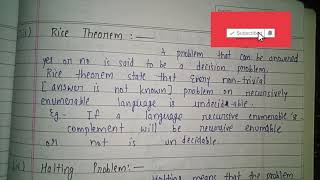 ii) Rice Theorem :—
A problem that can be answered
yes or no is said to be a decision problem.
Rice theorem state that Every non-trivial
[answer is not known] problem on recursively
enumerable language is undecidable.
Eg - If a language recursive enumerable's
complement will be recursive enumable
or not is undecidable.
Halting Problem :—
Halting means that the problem
Subscribe